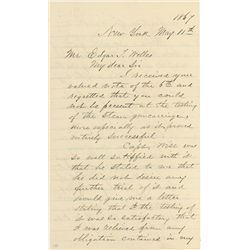 1867
New York May 11th
Mr Edgar T. Welles
My dear Sir
I received your
valued note of the 6th and
regretted that you could
not be present at the testing
of the Steam gun carriage,
more especially as it proved
entirely successful.
Capt. Wise
was so well satisfied with it
that he stated to me that
he did not desire any
further trial of it and
would give me a letter
stating that the testing of
it was so satisfactory that
it relieved me from any
obligation contained in my